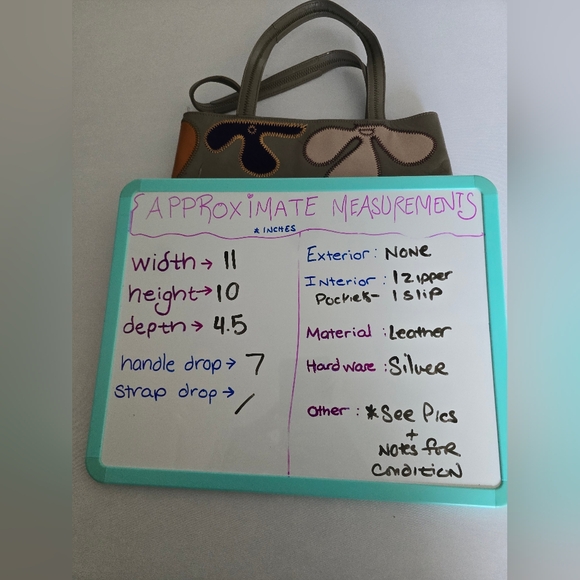 {APPROXIMATE MEASUREMENTS
* INCHES
width → 11
height → 10
depth → 4.5
handle drop → 7
strap drop → /
Exterior : NONE
Interior : 1 Zipper
Pockets - 1 slip
Material : Leather
Hardware : Silver
Other : *See Pics
+
Notes for
Condition